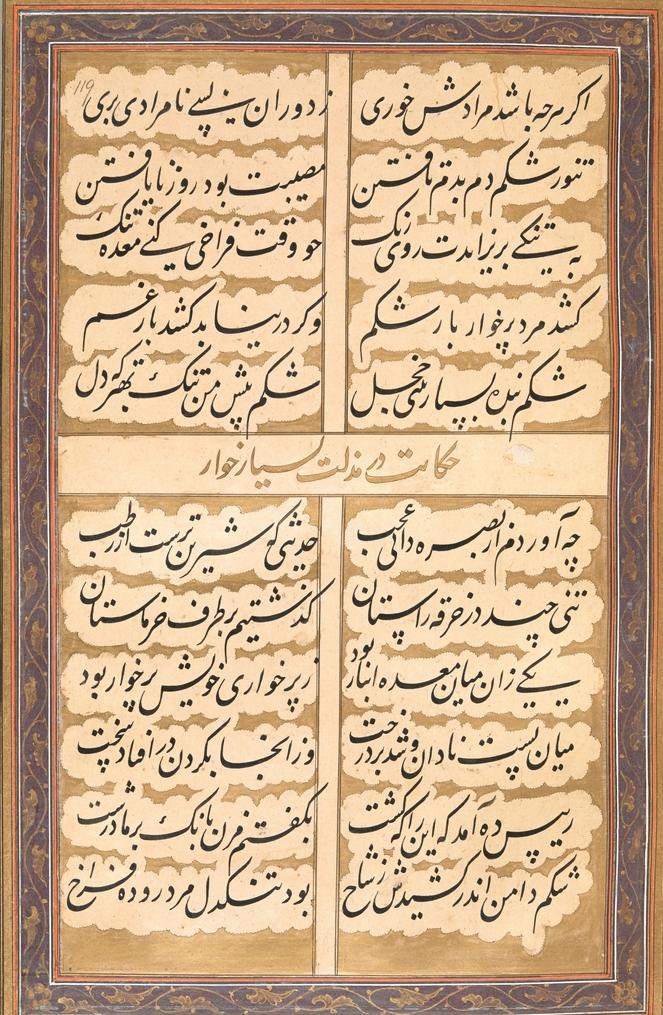 119
اکر هرچه باشد مرادش خوری ز دوران بسی نامرادی بری
تنور شکم دم بدم تافتن مصیبت بود روز نایافتن
به تنکی بریزاندت روی رنک چو وقت فراخی کنی معده تنک
کشد مرد پرخوار بار شکم وکر درنیابد کشد بار غم
شکم بنده بسیار بینی خجل شکم پیش من تنک بهتر که دل
حکایت در مذلت بسیار خوار
چه آوردم از بصره دانی عجب حدیثی که شیرین ترست از رطب
تنی چند در خرقه راستان کذشتیم بر طرف خرماستان
یکی زان میان معده انبار بود ز پر خواری خویش پر خوار بود
میان بست نادان و شد بر درخت وز انجا بکردن در افتاد سخت
رییس ده آمد که این را که کشت بکفتم مزن بانک بر ما درشت
شکم دامن اندر کشیدش ز شاخ بود تنکدل مرد روده فراخ